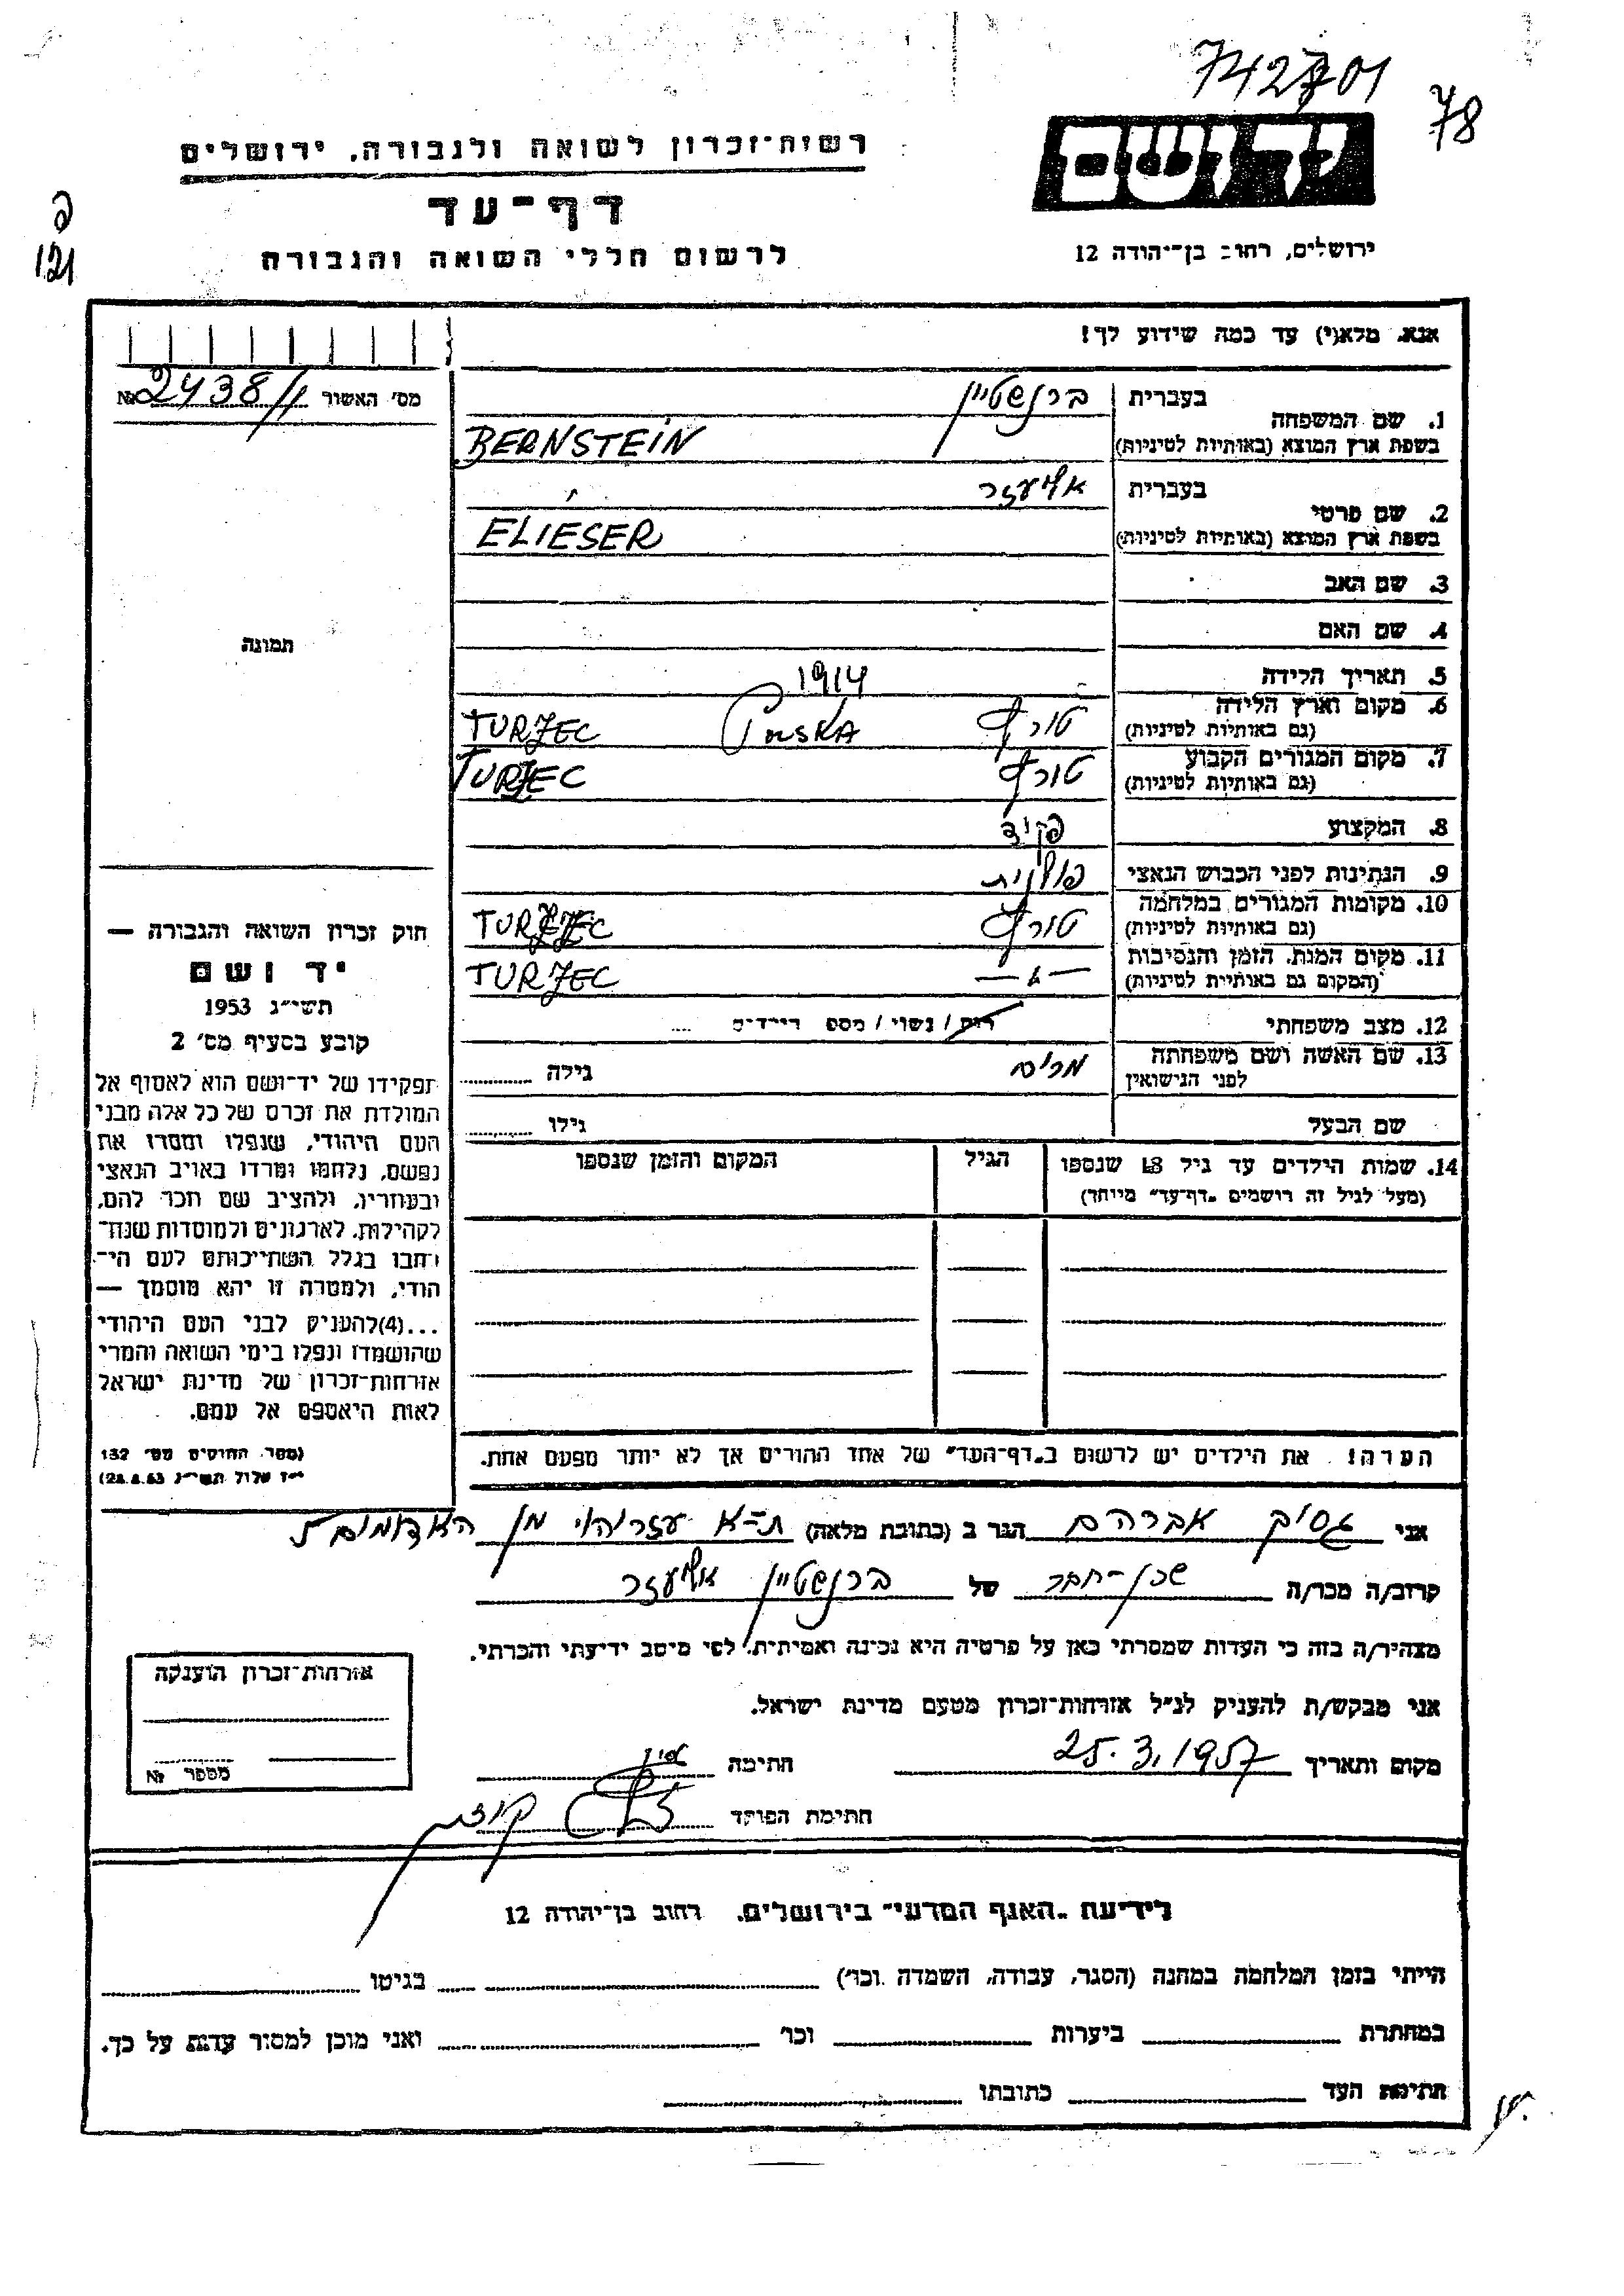 742701
78
יד ושם
רשות-זכרון לשואה ולגבורה, ירושלים
דף-עד
לרשום חללי השואה והגבורה
ירושלים, רחוב בן-יהודה 12
121
אנא, מלא(י) עד כמה שידוע לך!
מס' האשור № 2438/
1. שם המשפחה בעברית ברנשטיין
בשפת ארץ המוצא (באותיות לטיניות) BERNSTEIN
2. שם פרטי בעברית אליעזר
בשפת ארץ המוצא (באותיות לטיניות) ELIESER
3. שם האב
4. שם האם
תמונה
5. תאריך הלידה 1914
6. מקום וארץ הלידה
(גם באותיות לטיניות) טורץ POLSKA TURZEC
7. מקום המגורים הקבוע
(גם באותיות לטיניות) טורץ TURZEC
8. המקצוע פקיד
9. הנתינות לפני הכבוש הנאצי פולנית
10. מקומות המגורים במלחמה
(גם באותיות לטיניות) טורץ TURZEC
11. מקום המות, הזמן והנסיבות
(המקום גם באותיות לטיניות) — " — TURZEC
12. מצב משפחתי רווק / נשוי / מספ ילדים ....
13. שם האשה ושם משפחתה
לפני הנישואין מרים גילה
שם הבעל גילו
14. שמות הילדים עד גיל 18 שנספו הגיל המקום והזמן שנספו
(מעל לגיל זה רושמים "דף-עד" מיוחד)
חוק זכרון השואה והגבורה —
יד ושם
תשי"ג 1953
קובע בסעיף מס' 2
תפקידו של יד-ושם הוא לאסוף אל
המולדת את זכרם של כל אלה מבני
העם היהודי, שנפלו ומסרו את
נפשם, נלחמו ומרדו באויב הנאצי
ובעוזריו, ולהציב שם וזכר להם,
לקהילות, לארגונים ולמוסדות שנח-
רבו בגלל השתייכותם לעם הי-
הודי, ולמטרה זו יהא מוסמך —
...(4)להעניק לבני העם היהודי
שהושמדו ונפלו בימי השואה והמרי
אזרחות-זכרון של מדינת ישראל
לאות היאספם אל עמם.
(ספר החוקים מס' 132
י"ז אלול תשי"ג 28.8.53)
הערה! את הילדים יש לרשום ב"דף-העד" של אחד ההורים אך לא יותר מפעם אחת.
אני אברהם הגר ב (כתובת מלאה) ת-א עזריהו מן האדומים 5
קרוב/ה מכר/ה שכן-חבר של ברנשטיין אליעזר
מצהיר/ה בזה כי העדות שמסרתי כאן על פרטיה היא נכונה ואמיתית, לפי מיטב ידיעתי והכרתי.
אני מבקש/ת להעניק לנ"ל אזרחות-זכרון מטעם מדינת ישראל.
מקום ותאריך 25.3.1957 חתימה
חתימת הפוקד
אזרחות-זכרון הוענקה
מספר №
לידיעת "האגף המדעי" בירושלים, רחוב בן-יהודה 12
הייתי בזמן המלחמה במחנה (הסגר, עבודה, השמדה וכו') בגיטו
במחתרת ביערות וכו' ואני מוכן למסור עדות על כך.
חתימת העד כתובתו